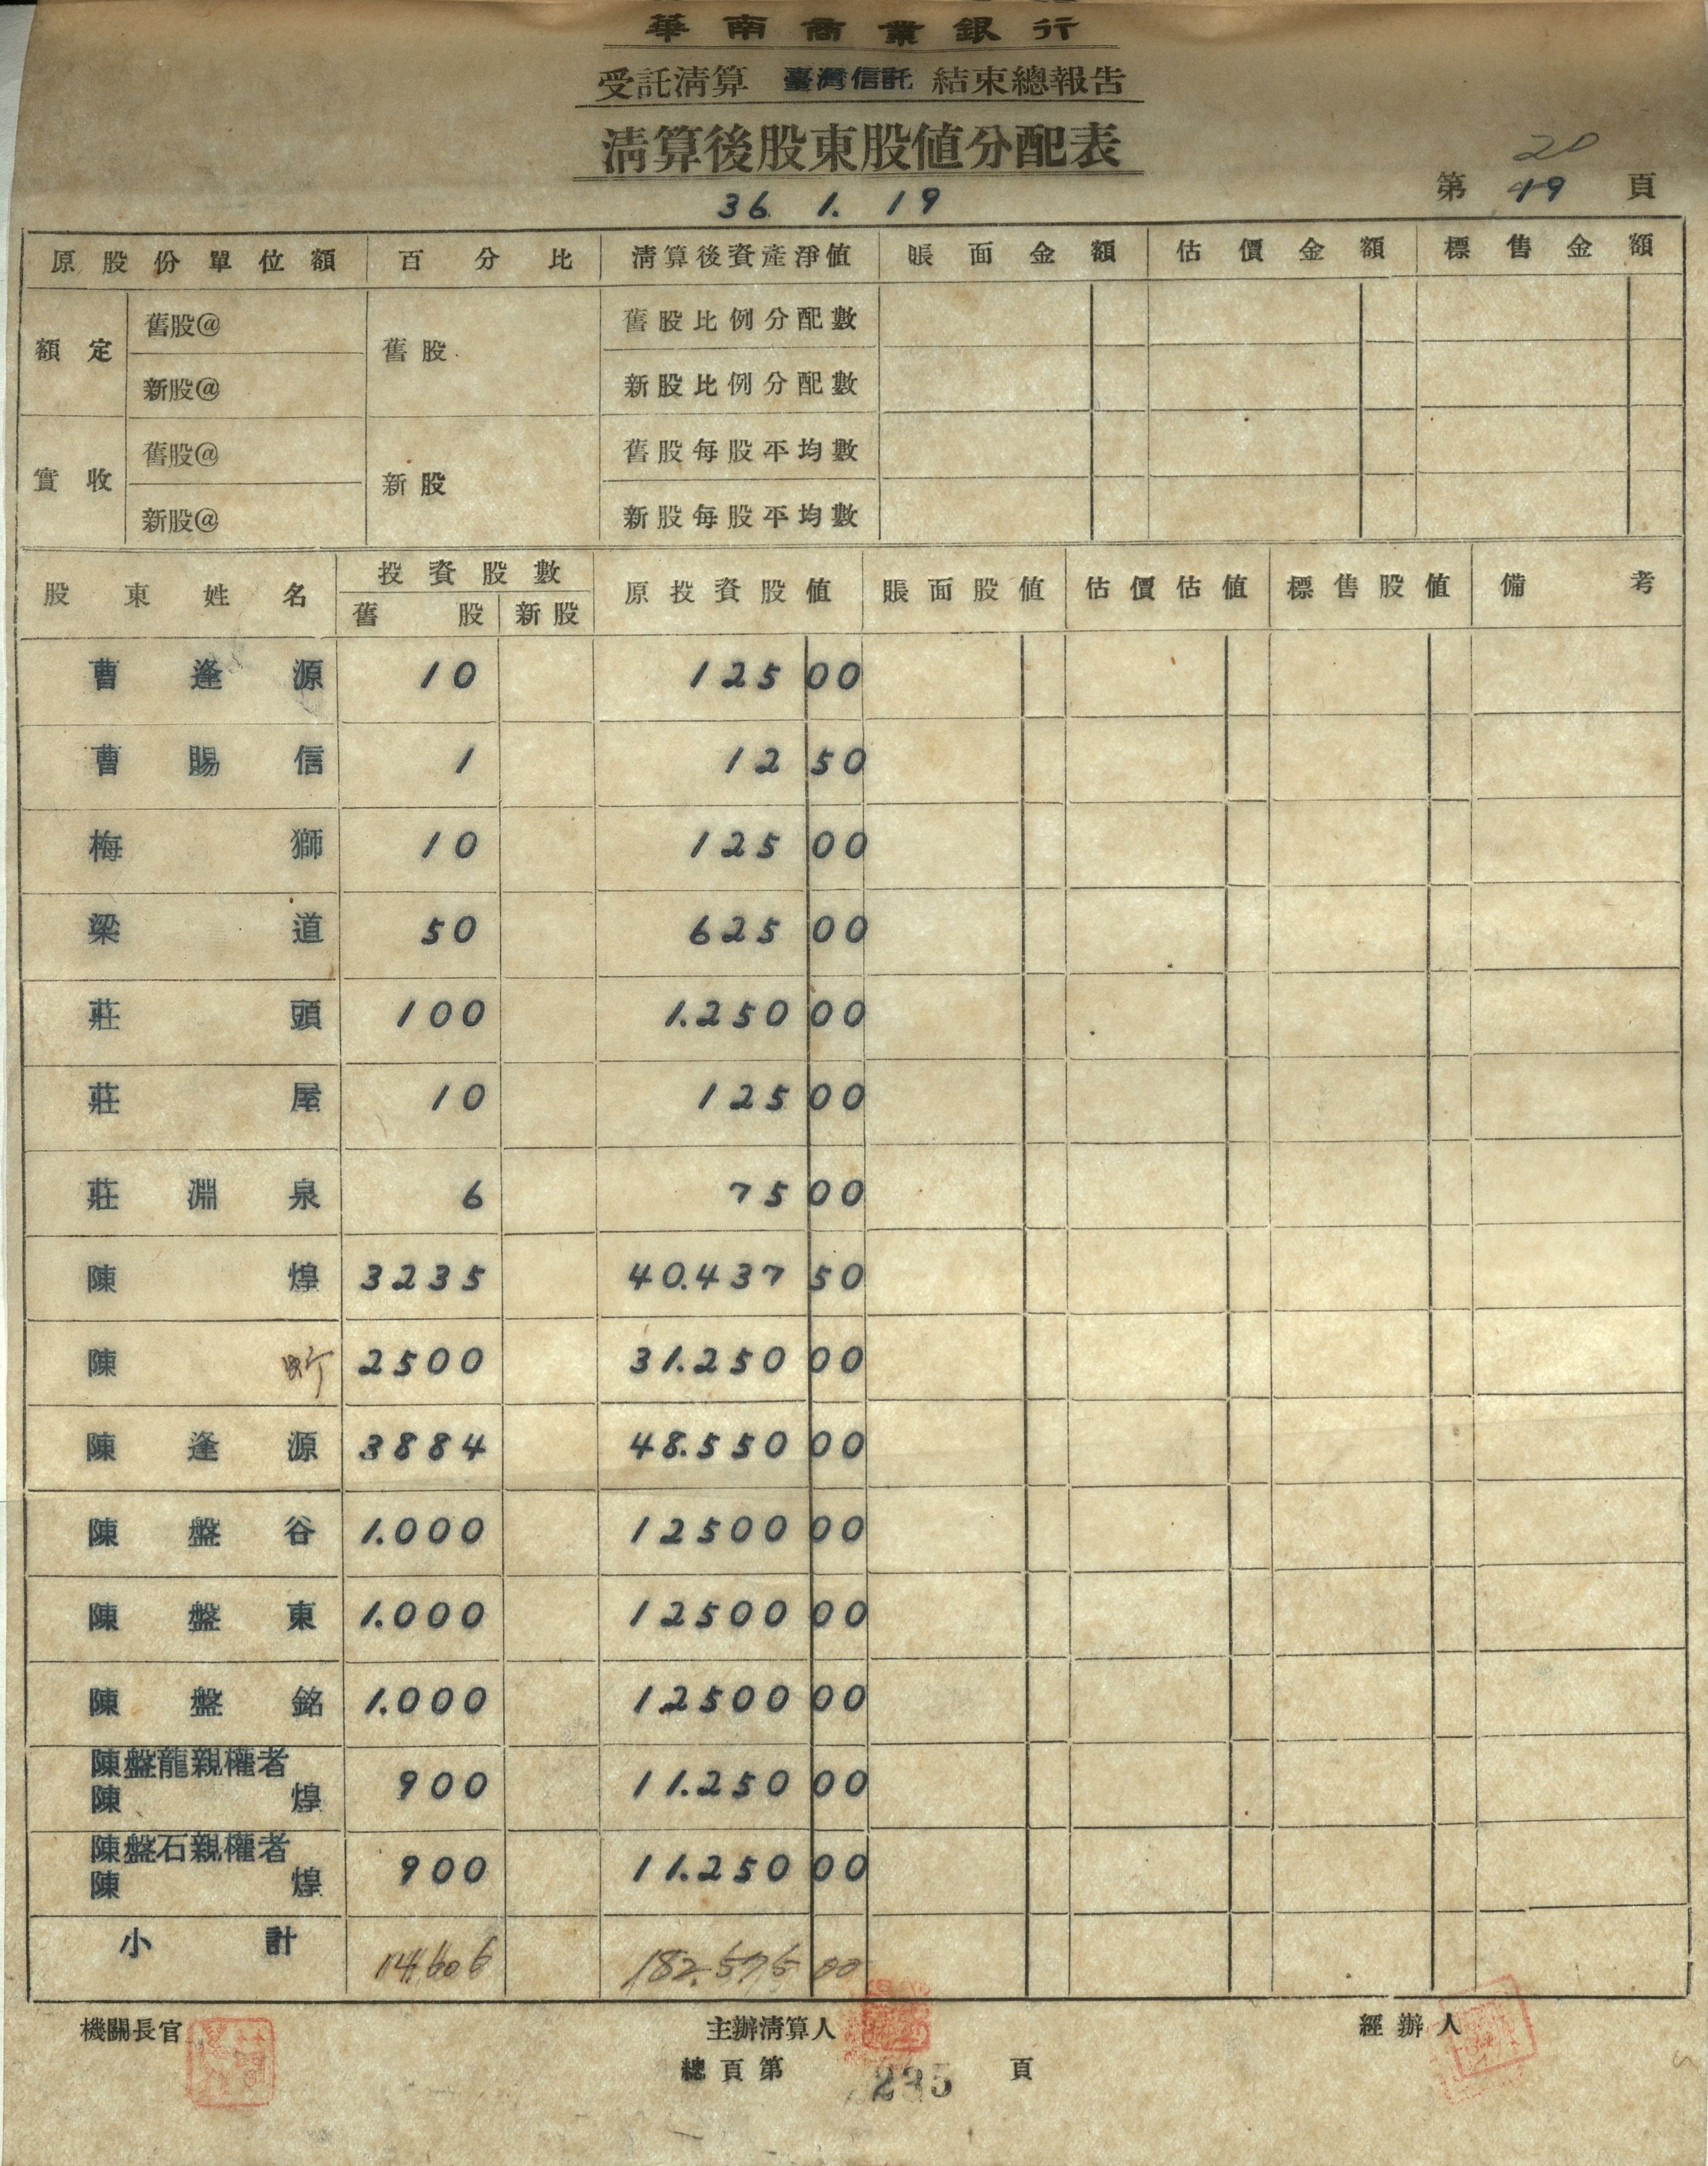 華南商業銀行
受託清算 臺灣信託 結束總報告
清算後股東股值分配表
36. 1. 19
20
第 19 頁
原股份單位額 百分比 清算後資產淨值 賬面金額 估價金額 標售金額
額定 舊股@ 舊股 舊股比例分配數
新股@ 新股比例分配數
實收 舊股@ 新股 舊股每股平均數
新股@ 新股每股平均數
股東姓名 投資股數 原投資股值 賬面股值 估價估值 標售股值 備考
舊股 新股
曹逢源 10 125 00
曹賜信 1 12 50
梅獅 10 125 00
梁道 50 625 00
莊頭 100 1.250 00
莊屋 10 125 00
莊淵泉 6 75 00
陳煌 3235 40.437 50
陳 2500 31.250 00
陳逢源 3884 48.550 00
陳盤谷 1.000 12500 00
陳盤東 1.000 12500 00
陳盤銘 1.000 12500 00
陳盤龍親權者
陳煌 900 11.250 00
陳盤石親權者
陳煌 900 11.250 00
小計 14.606 182.575 00
機關長官 主辦清算人 經辦人
總頁第 235 頁